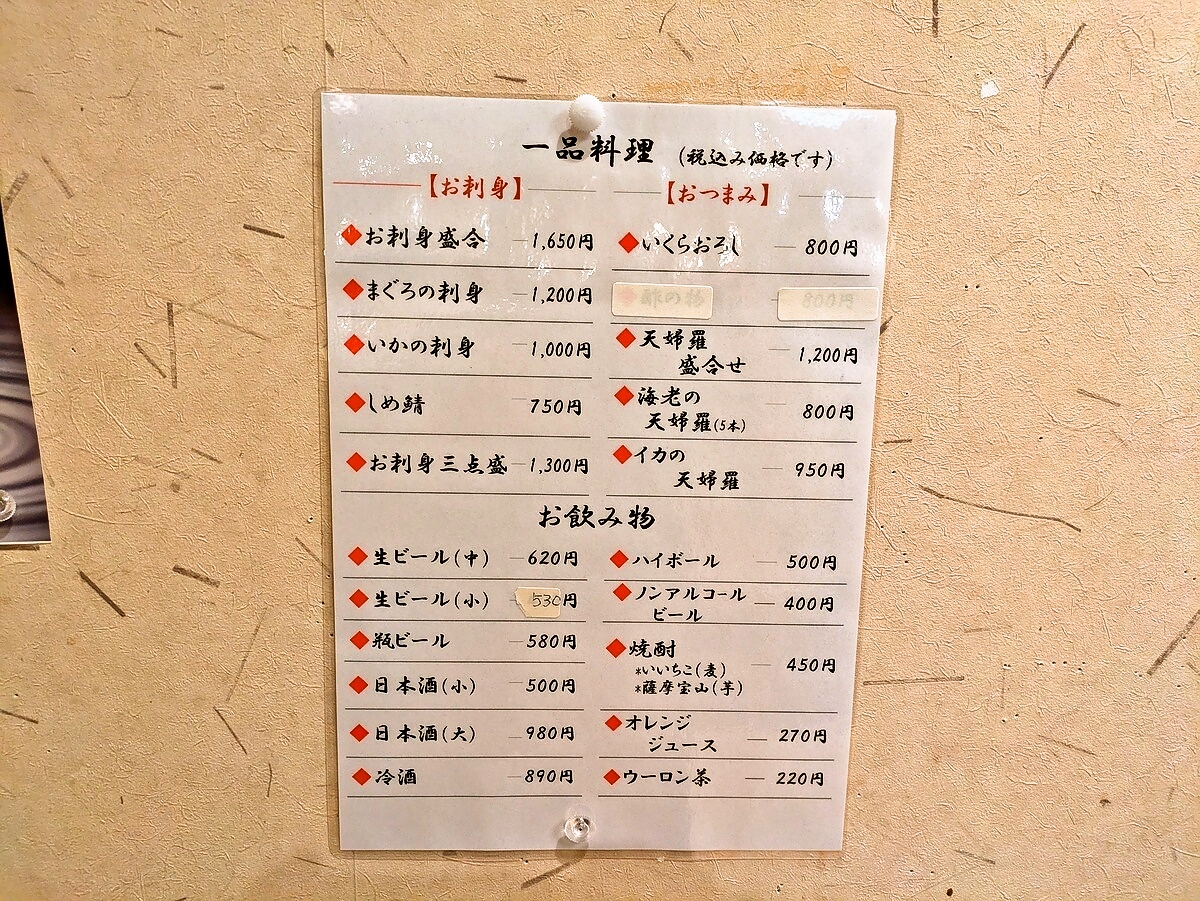 一品料理 (税込み価格です)
【お刺身】
◆お刺身盛合 1,650円
◆まぐろの刺身 1,200円
◆いかの刺身 1,000円
◆しめ鯖 750円
◆お刺身三点盛 1,300円
【おつまみ】
◆いくらおろし 800円
◆酢の物 800円
◆天婦羅
盛合せ 1,200円
◆海老の
天婦羅(5本) 800円
◆イカの
天婦羅 950円
お飲み物
◆生ビール(中) 620円
◆生ビール(小) 530円
◆瓶ビール 580円
◆日本酒(小) 500円
◆日本酒(大) 980円
◆冷酒 890円
◆ハイボール 500円
◆ノンアルコール
ビール 400円
◆焼酎 450円
*いいちこ(麦)
*薩摩宝山(芋)
◆オレンジ
ジュース 270円
◆ウーロン茶 220円